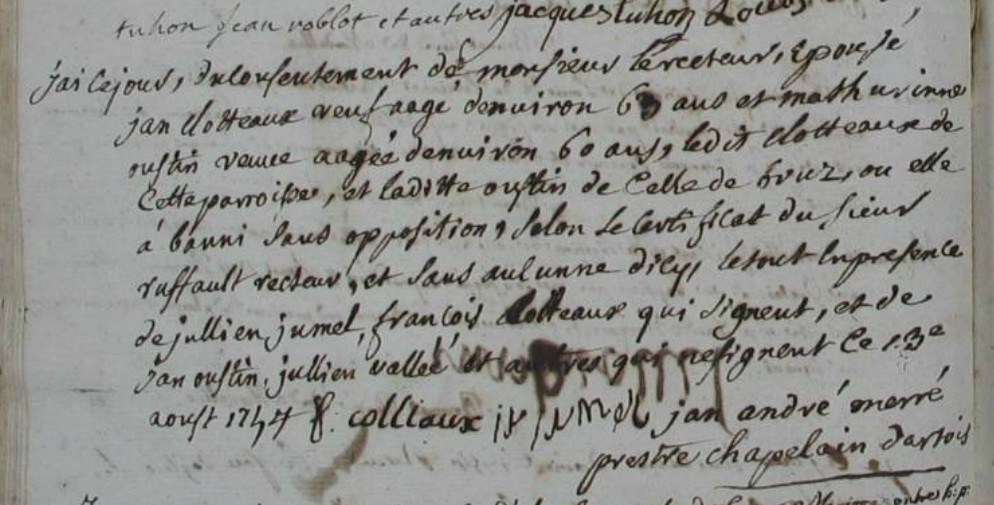 tuhon jean roblot et autres jacques tuhon Louis
jai ce jour, du consentement de monsieur le recteur, Epousé
jan Clotteaux veuf aagé denviron 63 ans et mathurinne
oustin veuve aagée denviron 60 ans, ledit Clotteaux de
Cette parroisse, et laditte oustin de Celle de bruz, ou elle
à banni sans opposition, selon le Certificat du sieur
ruffault recteur, et sans aucunne dicy, le tout En presence
de jullien jumel, francois Colteaux qui signent, et de
jan oustin, jullien vallée et autres qui ne signent Ce 13e
aoust 1744 f. colliaux jumel jan andré merré
prestre chapelain dartois